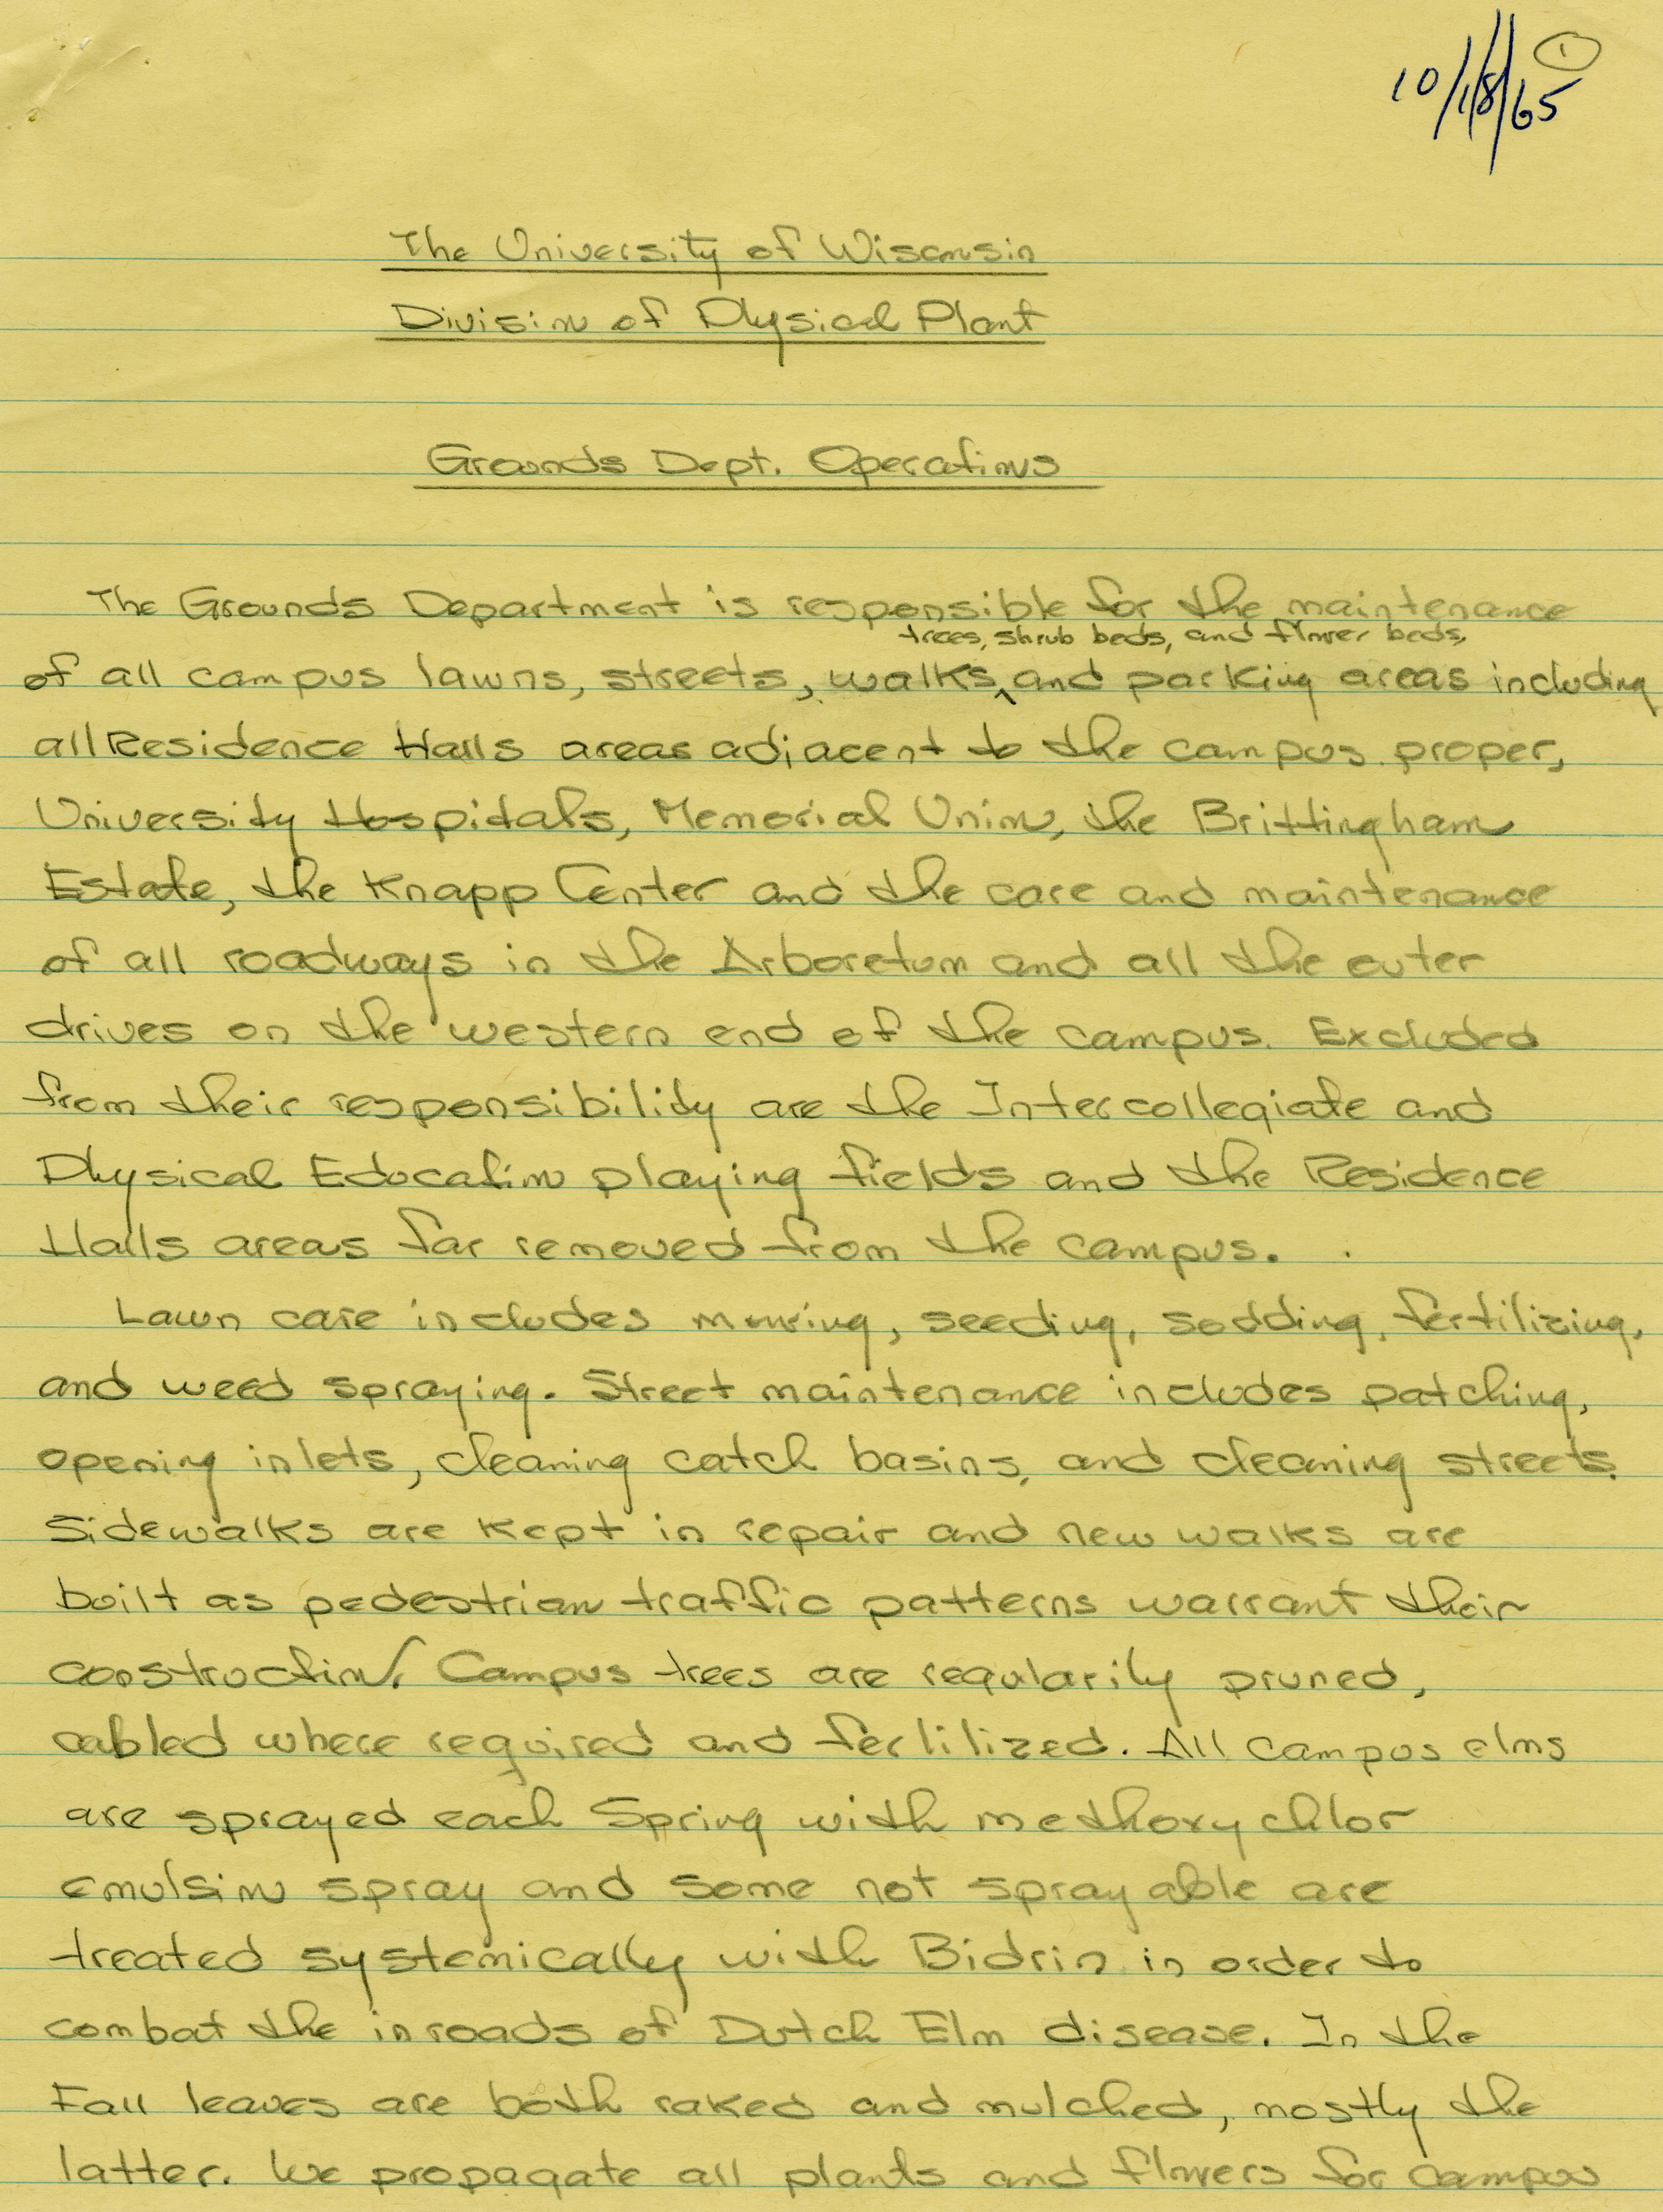 1
10/18/65
The University of Wisconsin
Division of Physical Plant
Grounds Dept. Operations
The Grounds Department is responsible for the maintenance
trees, shrub beds, and flower beds,
of all campus lawns, streets, walks, and parking areas including
all Residence Halls areas adjacent to the campus proper,
University Hospitals, Memorial Union, the Brittingham
Estate, the Knapp Center and the care and maintenance
of all roadways in the Arboretum and all the outer
drives on the western end of the campus. Excluded
from their responsibility are the Intercollegiate and
Physical Education playing fields and the Residence
Halls areas far removed from the campus.
Lawn care includes mowing, seeding, sodding, fertilizing,
and weed spraying. Street maintenance includes patching,
opening inlets, cleaning catch basins, and cleaning streets.
Sidewalks are kept in repair and new walks are
built as pedestrian traffic patterns warrant their
construction. Campus trees are regularily pruned,
cabled where required and fertilized. All campus elms
are sprayed each Spring with methoxychlor
emulsion spray and some not sprayable are
treated systemically with Bidrin in order to
combat the inroads of Dutch Elm disease. In the
Fall leaves are both raked and mulched, mostly the
latter. We propagate all plants and flowers for campus